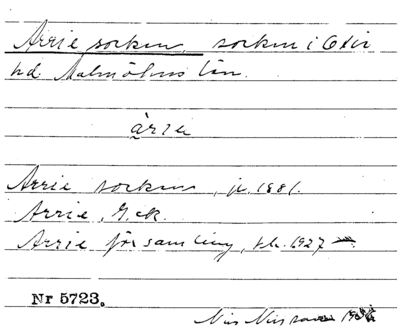 Arrie socken, socken i Oxie
hd. Malmöhus län.
àrıa
Arrie socken, jr. 1881.
Arrie, G.ck.
Arrie församling, tk. 1927
Nr 5723.
Nils Nilsson